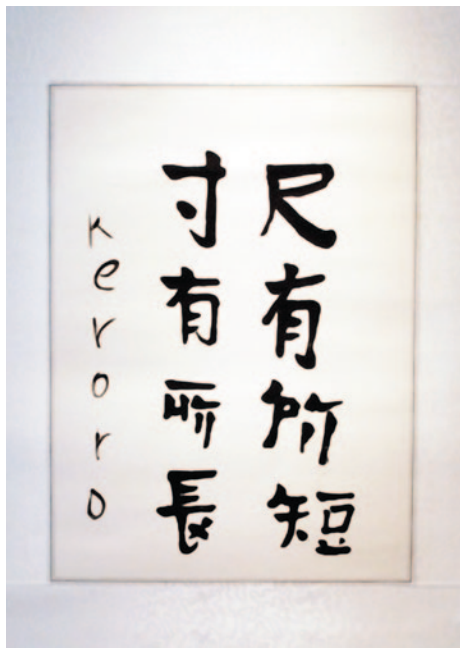 尺有所短
寸有所長
keroro